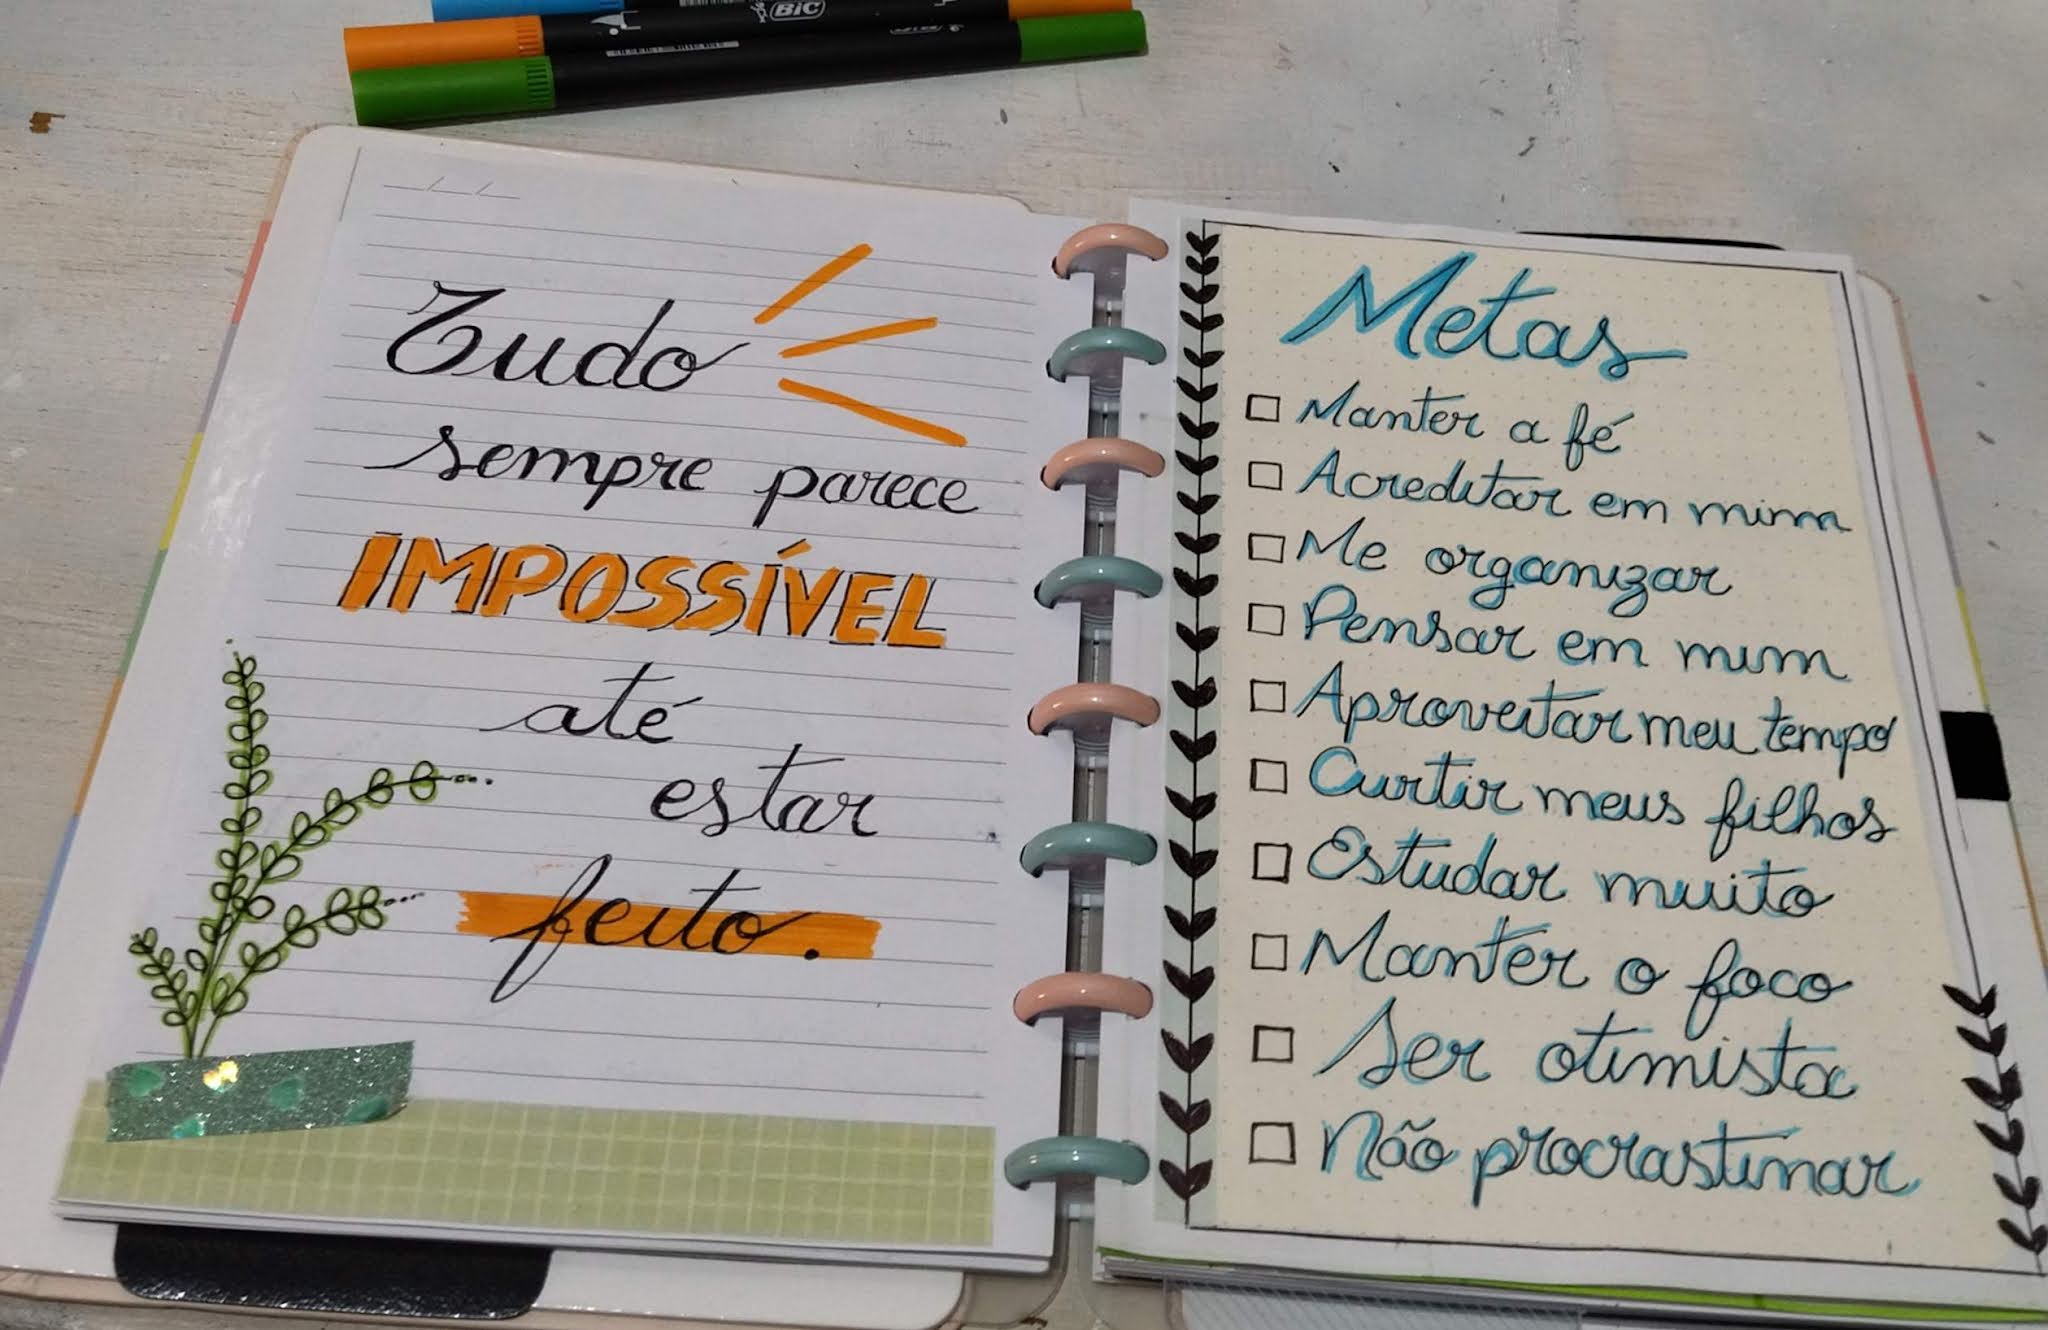 BIC
Tudo
sempre parece
IMPOSSÍVEL
até
estar
feito.
Metas
Manter a fé
Acreditar em mim
Me organizar
Pensar em mim
Aproveitar meu tempo
Curtir meus filhos
Estudar muito
Manter o foco
Ser otimista
Não procrastinar